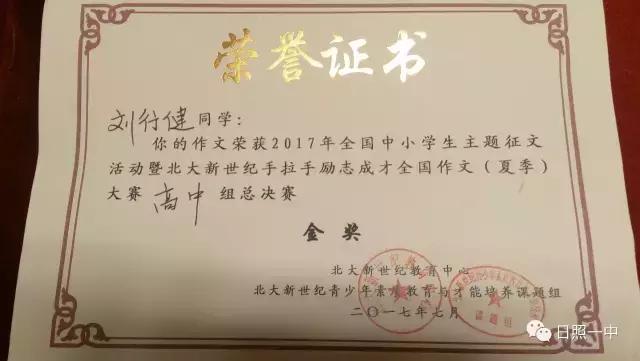 荣誉证书
刘行健同学:
你的作文荣获2017年全国中小学生主题征文
活动暨北大新世纪手拉手励志成才全国作文(夏季)
大赛 高中 组总决赛
金奖
北大新世纪教育中心
北大新世纪青少年素质教育与才能培养课题组
二〇一七年七月
课题组
日照一中